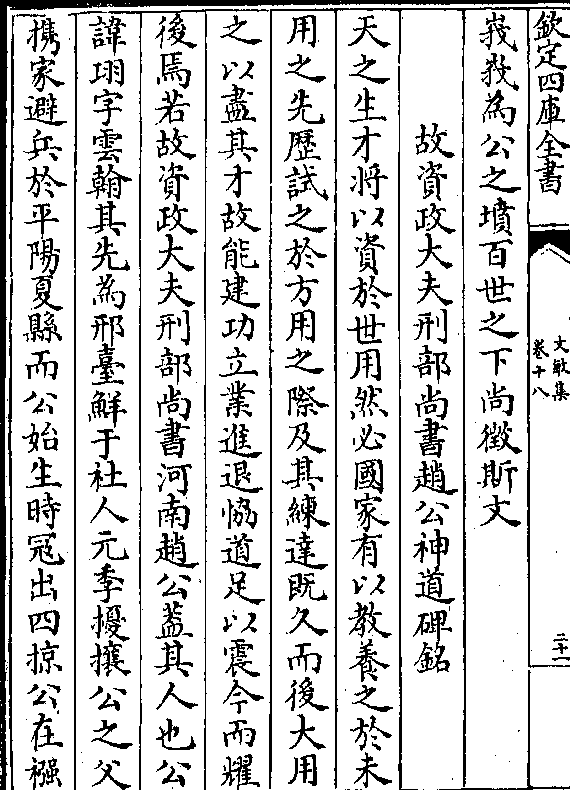 欽定四庫全書
文敏集
卷十八
二十一
峩峩為公之墳百世之下尚徵斯文
故資政大夫刑部尚書趙公神道碑銘
天之生才將以資於世用然必國家有以教養之於未
用之先歷試之於方用之際及其練達既久而後大用
之以盡其才故能建功立業進退恊道足以震今而耀
後焉若故資政大夫刑部尚書河南趙公葢其人也公
諱玥字雲翰其先為邢臺鮮于社人元季擾攘公之父
㩗家避兵於平陽夏縣而公始生時冦出四掠公在襁